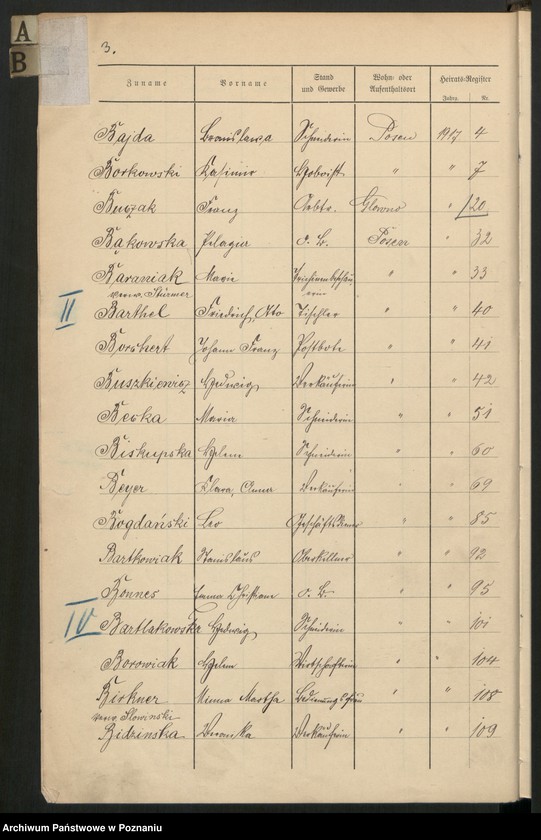 A
B
3.
Zuname Vorname Stand und Gewerbe Wohn- oder Aufenthaltsort Heirats-Register
Jahrg. Nr.
Bajda Bronislawa Schneiderin Posen 1917 4
Borkowski Kasimir " 7
Buszak Franz Arbtr. Glowno " 120
Bąkowska Pelagia o. B. Posen " 32
Baraniak Marie " " 33
verw. Stürmer
II Barthel Friedrich, Otto Tischler " " 40
Borchert Johann Franz Postbote " " 41
Buszkiewicz Hedwig Verkäuferin " " 42
Beska Maria Schneiderin " " 51
Biskupska Helene Schneiderin " " 60
Beyer Clara, Anna Verkäuferin " " 69
Bogdański Leo Geschäftsdiener " " 85
Bartkowiak Stanislaus Oberkellner " " 92
Bonnes Christiane o. B. " " 95
IV Bartlakowska Hedwig Schneiderin " " 101
Borowiak Helene Wirtschafterin " " 104
Birkner Minna Martha Bedienungsfrau " " 108
verw. Slowinski
Bidzinska Veronika Verkäuferin " " 109
Archiwum Państwowe w Poznaniu